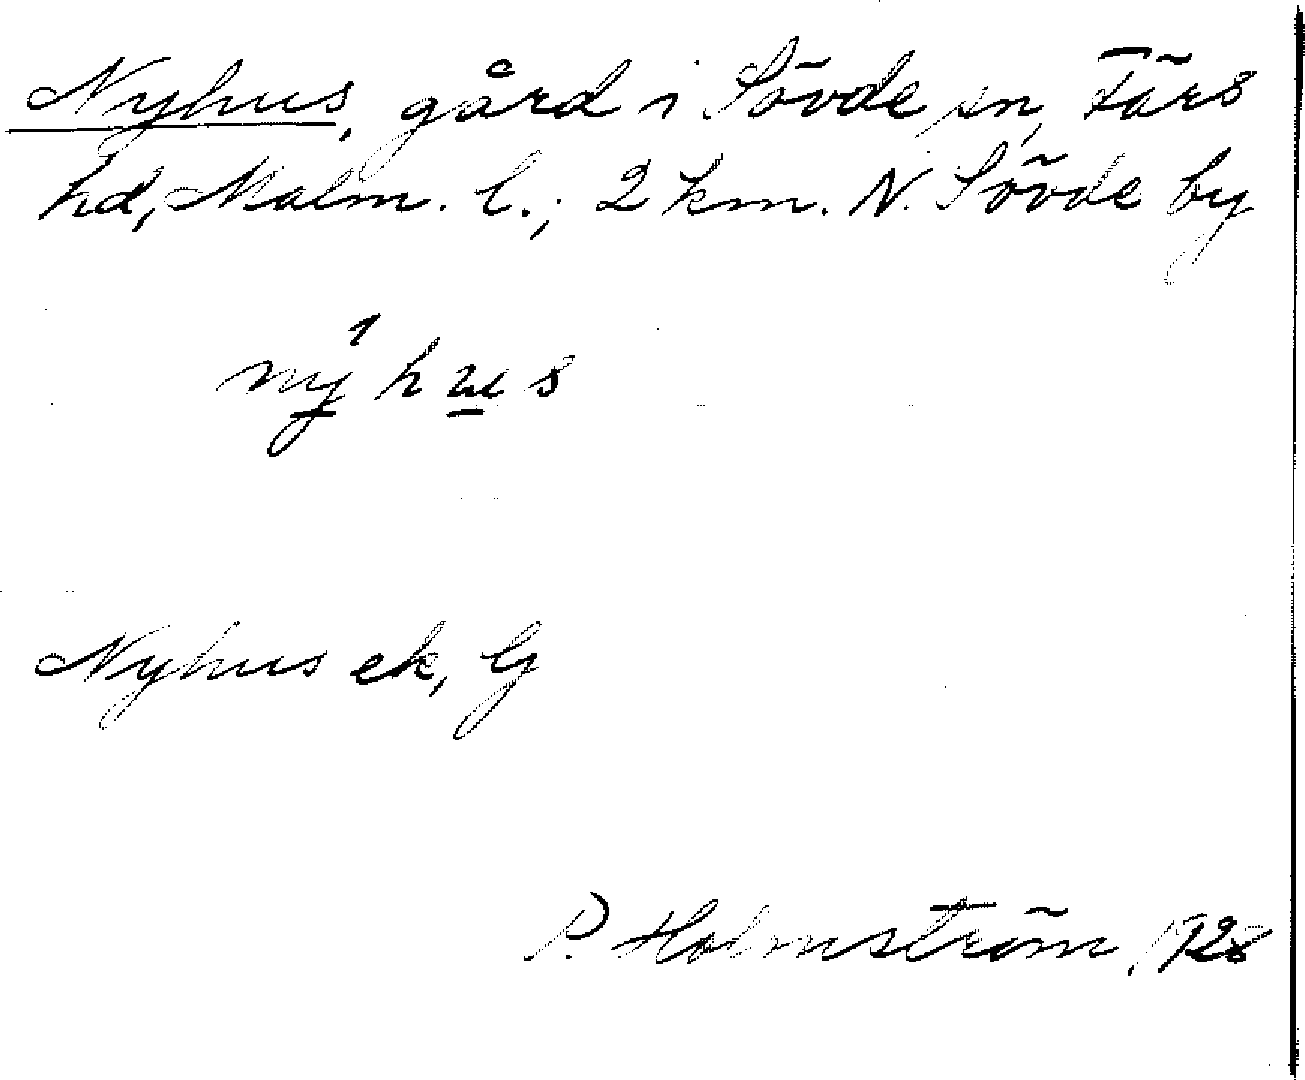 Nyhus, gård i Sövde sn, Färs
hd, Malm. l.; 2 km. N. Sövde by
nýhus
Nyhus ek, G
P. Holmström, 1928